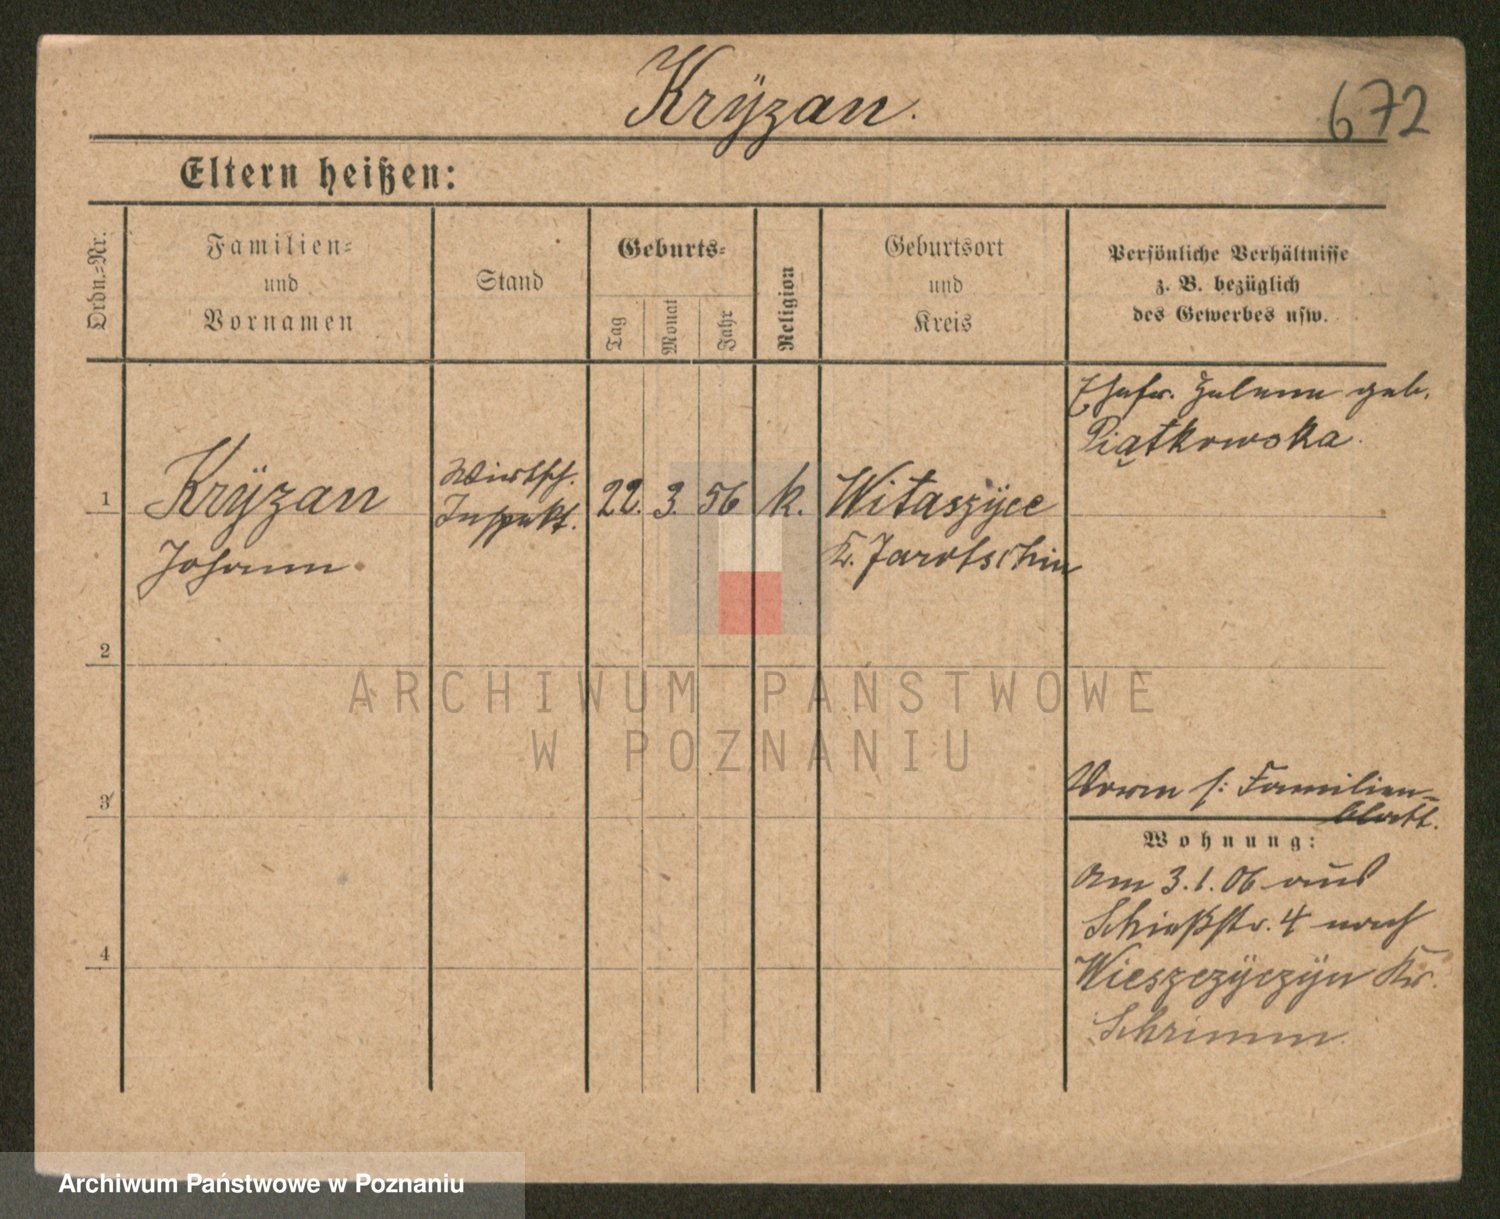 Krÿzan.
672
Eltern heißen:
Ordn.=Nr.
Familien=
und
Vornamen
Stand
Geburts=
Tag
Monat
Jahr
Religion
Geburtsort
und
Kreis
Persönliche Verhältnisse
z. B. bezüglich
des Gewerbes usw.
Ehefr. Helene geb.
Piątkowska.
1
Krÿzan
Johann
Wirtsch.
Inspekt.
22. 3. 56
k.
Witaszÿce
Kr. Jarotschin
2
ARCHIWUM PAŃSTWOWE
W POZNANIU
3
Vorm s: Familien=
blatt.
Wohnung:
Am 3.1.06 aus
Schießstr. 4 nach
4
Wieszczÿczÿn Kr.
Schrimm.
Archiwum Państwowe w Poznaniu